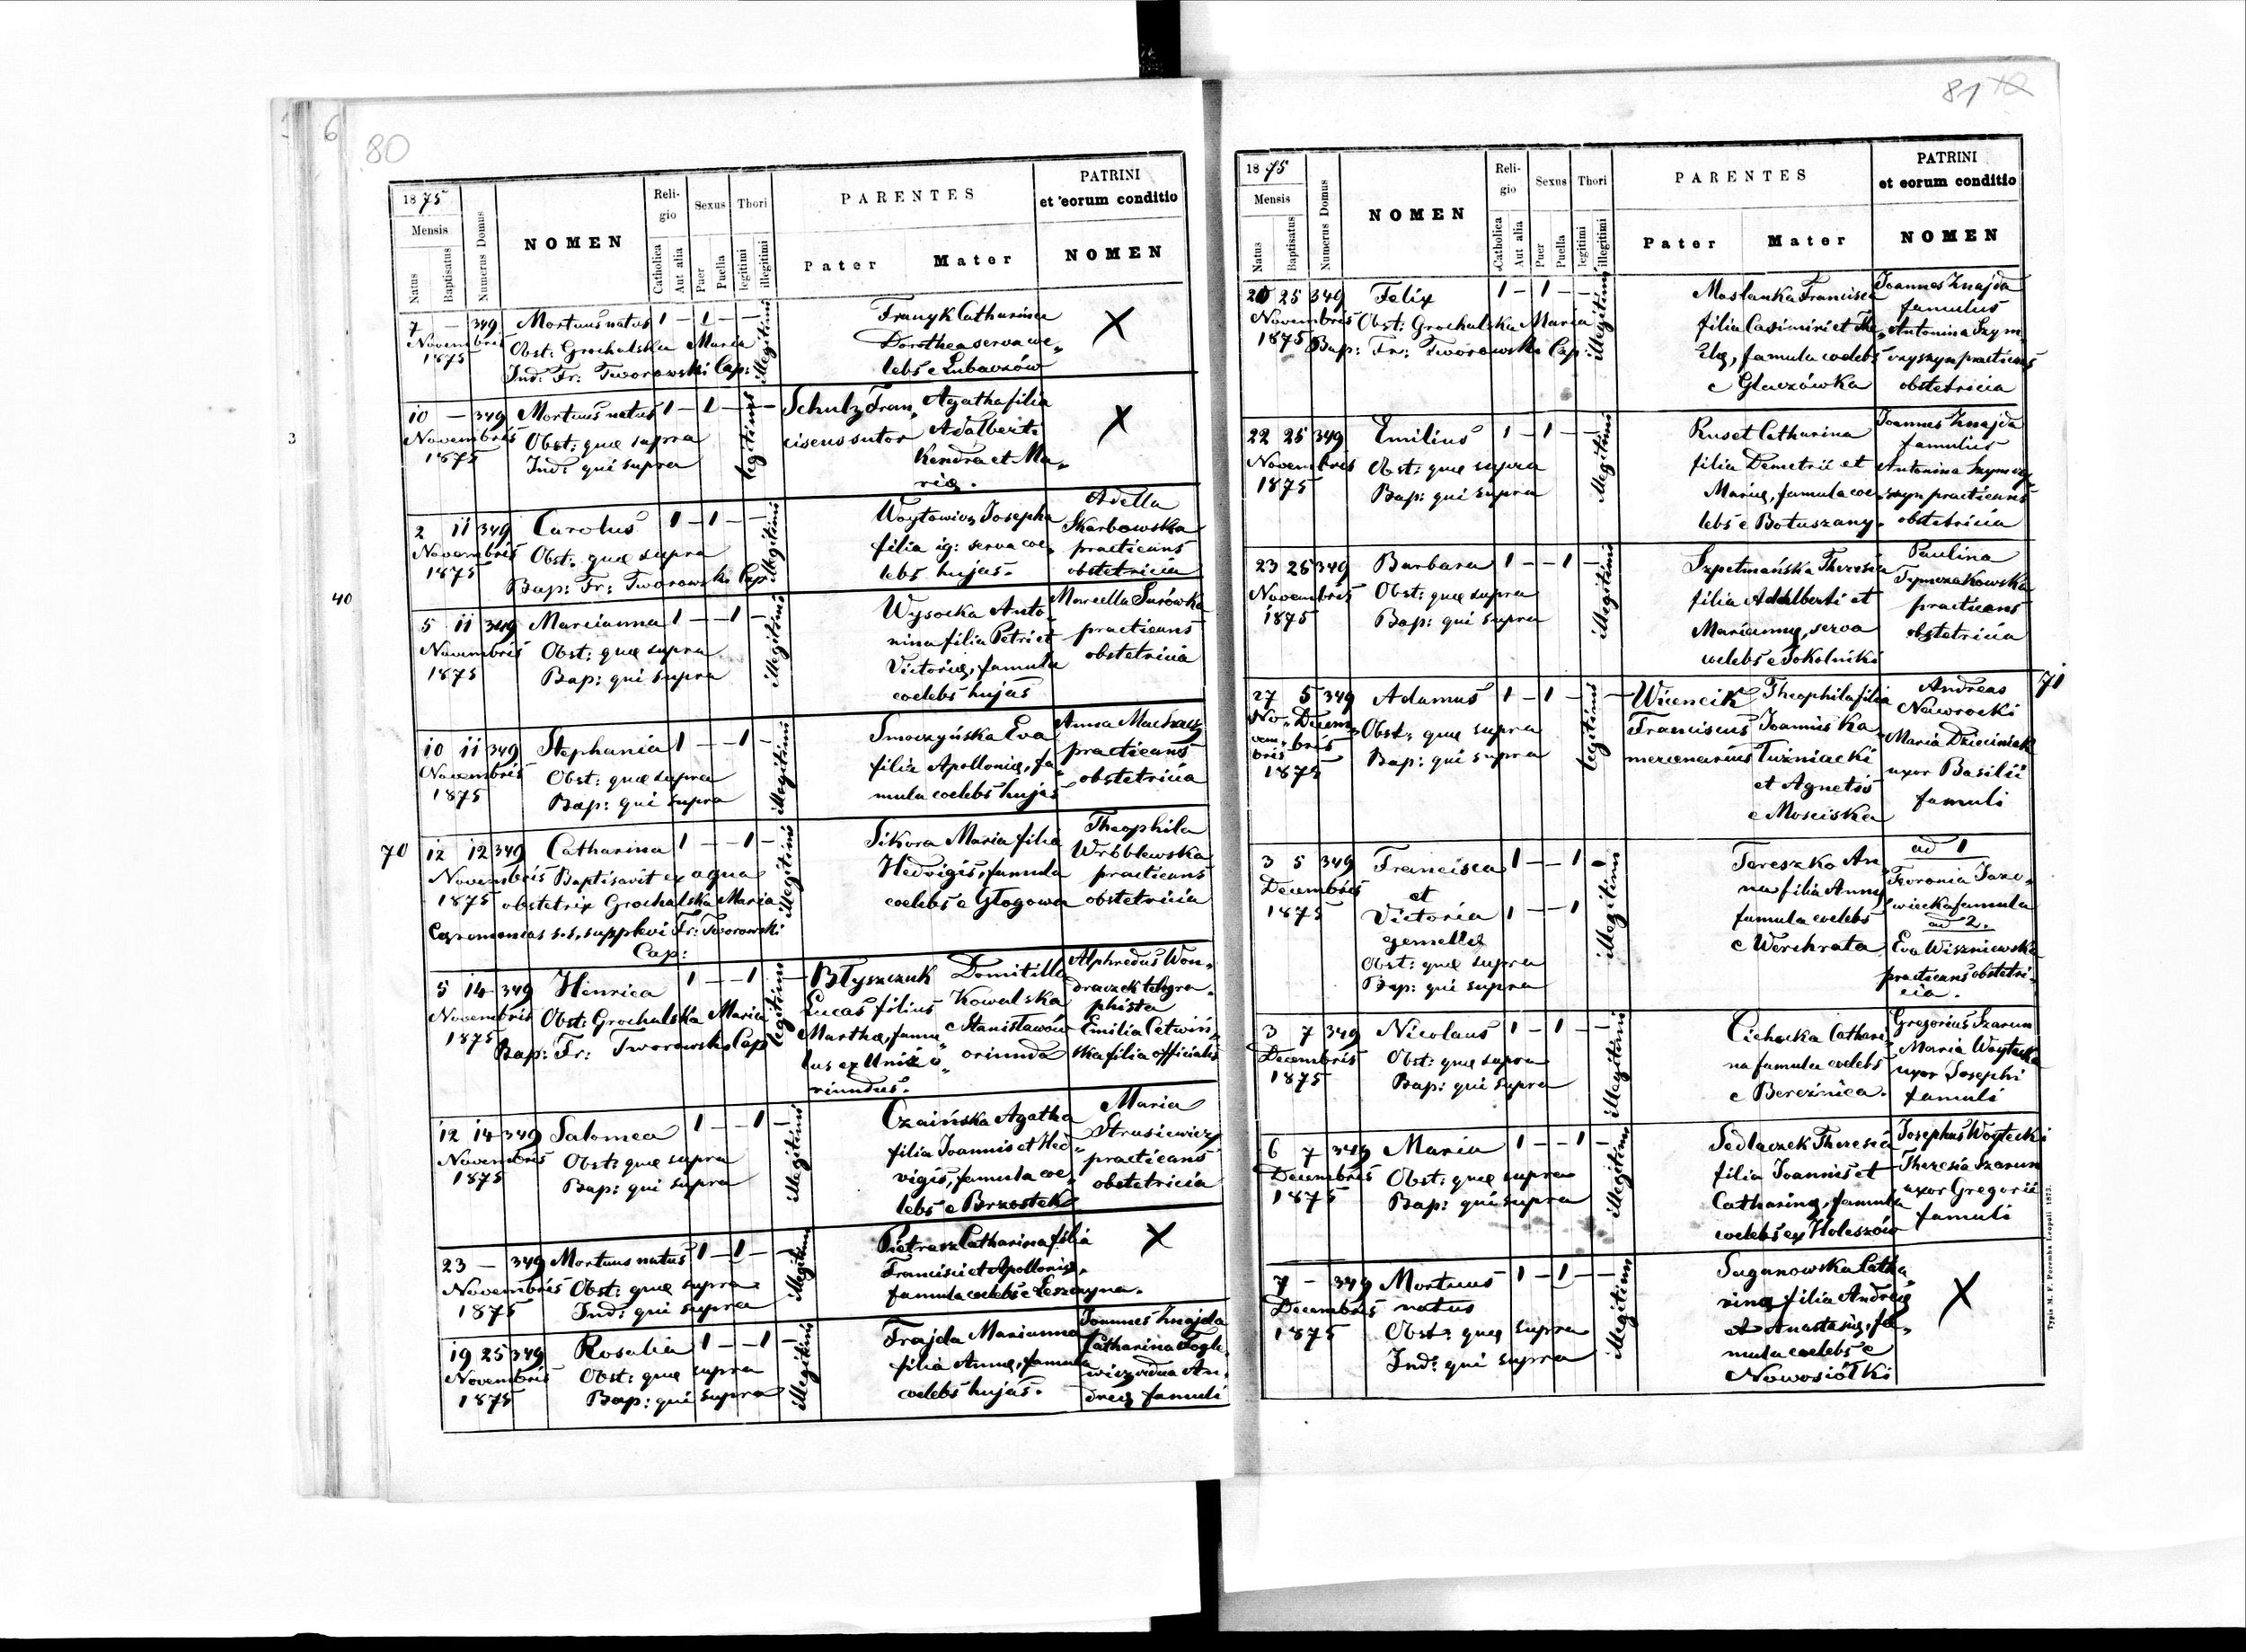 80
1875
Mensis
Natus
Baptisatus
Numerus Domus
NOMEN
Religio
Catholica
Aut alia
Sexus
Puer
Puella
Thori
legitimi
illegitimi
PARENTES
Pater
Mater
PATRINI
et eorum conditio
NOMEN
7 — 349 Mortuus natus 1 — 1 — — illegitimi Franyk Catharina
Novembris Obst: Grochalska Maria Dorothea serva coe„
1875 Ind: Fr: Tworowski Cap: lebs e Lubaczów
10 — 349 Mortuus natus 1 — 1 — — legitimus Schulz Fran„ Agatha filia
Novembris Obst: quæ supra ciscus sutor Adalberti
1875 Ind: qui supra Kendra et Ma„
riæ.
2 11 349 Carolus 1 — 1 — — illegitimi Woytowicz Josepha Adella
Novembris Obst: quæ supra filia ig: serva coe„ Skarbowska
1875 Bap: Fr: Tworowski Cap lebs hujas. practicans
obstetricia
40
5 11 349 Marianna 1 — — 1 — illegitimi Wysocka Anto Marcella Surówka
Novembris Obst: quæ supra nina filia Petri et practicans
1875 Bap: qui supra Victoriæ, famula obstetricia
coelebs hujas
10 11 349 Stephania 1 — — 1 — illegitimi Smoczyńska Eva Anna
Novembris Obst: quæ supra filia Apolloniæ, fa„ practicans
1875 Bap: qui supra mula coelebs hujas obstetricia
70
12 12 349 Catharina 1 — — 1 — illegitimi Sikora Maria filia Theophila
Novembris Baptisavit ex aqua Hedvigis, famula Wróblewska
1875 obstetrix Grochalska Maria coelebs e Głogowa practicans
Ceremonias s.s. supplevi Fr: Tworowski obstetricia
Cap:
5 14 349 Henrica 1 — — 1 — legitimi Błyszczuk Domitilla Alphredus Won„
Novembris Obst: Grochalska Maria Lucas filius Kowalska draczek telegra„
1875 Bap: Fr: Tworowski Cap Marthæ, famu„ e Stanisławów phista
lus ex Uniż o„ oriunda Emilia Cetwiń„
riundus. ska filia officialis
12 14 349 Salomea 1 — — 1 — illegitimi Czaińska Agatha Maria
Novembris Obst: quæ supra filia Joannis et Hed„ Strusiewicz
1875 Bap: qui supra vigis, famula coe„ practicans
lebs e Brzostek obstetricia
23 — 349 Mortuus natus 1 — 1 — — illegitimi Pietrasz Catharina filia
Novembris Obst: quæ supra Francisci et Apolloniæ,
1875 Ind: qui supra famula coelebs e Leszczyna.
19 25 349 Rosalia 1 — — 1 — illegitimi Frajda Marianna Joannes Znajda
Novembris Obst: quæ supra filia Annæ, famula Catharina
1875 Bap: qui supra coelebs hujas. vidua An„
dreæ famuli
81
1875
Mensis
Natus
Baptisatus
Numerus Domus
NOMEN
Religio
Catholica
Aut alia
Sexus
Puer
Puella
Thori
legitimi
illegitimi
PARENTES
Pater
Mater
PATRINI
et eorum conditio
NOMEN
20 25 349 Felix 1 — 1 — — illegitimi Maslanka Francisca Joannes Znajda
Novembris Obst: Grochalska Maria filia Casimiri et The„ famulus
1875 Bap: Fr: Tworowski Cap: klæ, famula coelebs Antonina Szym„
e Glaczówka czyszyn practicans
obstetricia
22 25 349 Emilius 1 — 1 — — illegitimi Ruset Catharina Joannes Znajda
Novembris Obst: quæ supra filia Demetrii et famulus
1875 Bap: qui supra Mariæ, famula coe„ Antonina Szymczy„
lebs e Botuszany. szyn practicans
obstetricia
23 25 349 Barbara 1 — — 1 — illegitimi Szpetmańska Theresia Paulina
Novembris Obst: quæ supra filia Adalberti et Tymczakowska
1875 Bap: qui supra Mariannæ, serva practicans
coelebs e Sokolniki obstetricia
27 5 349 Adamus 1 — 1 — — legitimus Wiencik Theophila filia Andreas 71
No„ Decem„ Obst: quæ supra Franciscus Joannis Ka„ Nawrocki
vem„ bris Bap: qui supra mercenarius Tuzniacki Maria Dzieciniak
bris et Agnetis uxor Basilii
1875 e Mosciska famuli
3 5 349 Francisca 1 — — 1 illegitimi Tereszko An„ ad 1
Decembris et na filia Annæ Fevronia Jaxo„
1875 Victoria 1 — — 1 famula coelebs wiecka famula
gemellæ e Werchrata ad 2.
Obst: quæ supra Eva Wiszniewska
Bap: qui supra practicans obstetri„
cia.
3 7 349 Nicolaus 1 — 1 — — illegitimi Cichocka Cathari„ Gregorius Szarun
Decembris Obst: quæ supra na famula coelebs Maria Woytecka
1875 Bap: qui supra e Berezinica. uxor Josephi
famuli
6 7 349 Maria 1 — — 1 — illegitimi Sedlaczek Theresia Josephus Woytecki
Decembris Obst: quæ supra filia Joannis et Theresia Szarun
1875 Bap: qui supra Catharinæ, famula uxor Gregorii
coelebs ex Holeszów famuli
7 — 349 Mortuus 1 — 1 — — illegitimi Saganowska Catha
Decembris natus rina filia Andreæ
1875 Obst: quæ supra et Anastasiæ, fa„
Ind: qui supra mula coelebs e
Nowosiółki
Typis M. F. Poremba Leopoli 1873.